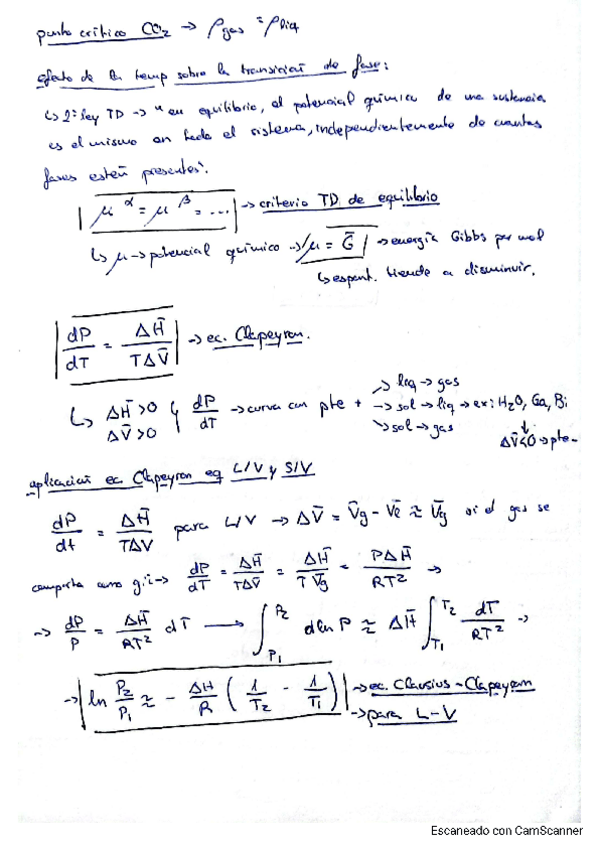 punto crítico CO₂ → ρgas = ρliq
efecto de la temp sobre la transición de fase:
↳ 2ª ley TD → "en equilibrio, el potencial químico de una sustancia
es el mismo en todo el sistema, independientemente de cuantas
fases estén presentes".
μ^α = μ^β = ... → criterio TD de equilibrio
↳ μ → potencial químico → μ = G̅ → energía Gibbs por mol
↳ espont. tiende a disminuir.
dP/dT = ΔH̅/TΔV̅ → ec. Clapeyron.
→ liq → gas
↳ ΔH̅ > 0 y dP/dT → curva con pte + → sol → liq → ex: H₂O, Ga, Bi
ΔV̅ > 0 → sol → gas ΔV̅<0 → pte -
aplicación ec. Clapeyron eq L/V y S/V
dP/dt = ΔH̅/TΔV para L/V → ΔV̅ = V̅g - V̅l ≈ V̅g si el gas se
comporta como g.i → dP/dT = ΔH̅/TΔV̅ = ΔH̅/T V̅g = PΔH̅/RT² →
→ dP/P = ΔH̅/RT² dT → ∫_P₁^P₂ dlnP ≈ ΔH̅ ∫_T₁^T₂ dT/RT² →
→ ln P₂/P₁ ≈ - ΔH/R (1/T₂ - 1/T₁) → ec. Clausius-Clapeyron
→ para L-V
Escaneado con CamScanner